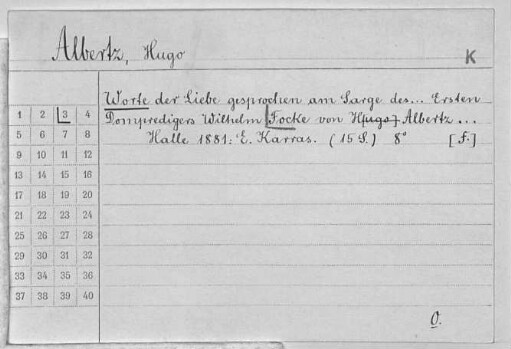 Albertz, Hugo
K
Worte der Liebe gesprochen am Sarge des... Ersten
Dompredigers Wilhelm Focke von H[ugo] Albertz...
Halle 1881: E. Karras. (15 S.) 8° [F.]
1 2 3 4
5 6 7 8
9 10 11 12
13 14 15 16
17 18 19 20
21 22 23 24
25 26 27 28
29 30 31 32
33 34 35 36
37 38 39 40
O.